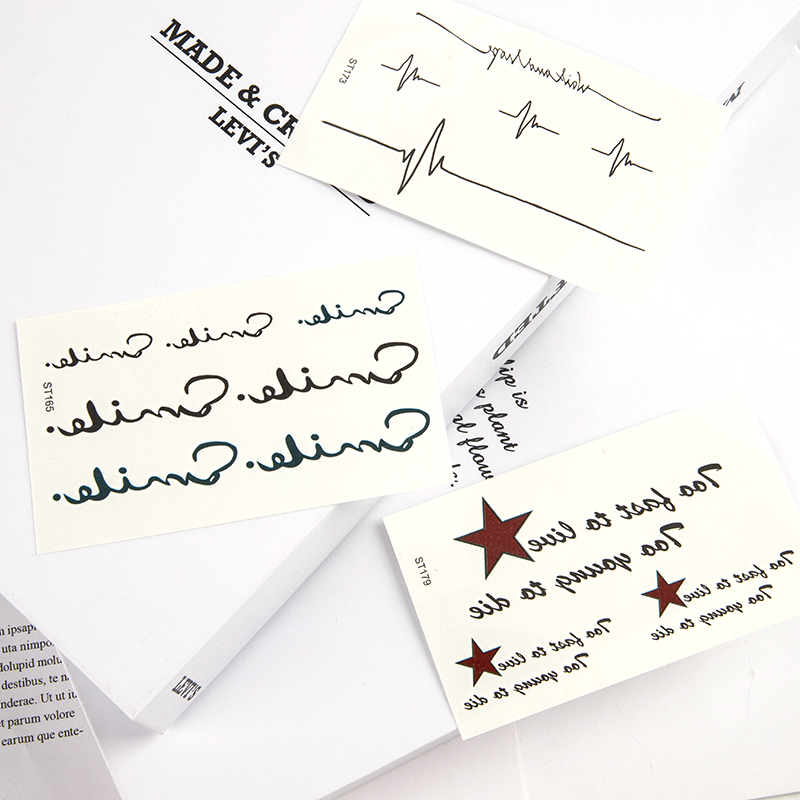 MADE & CR
LEVI'S
ST173
Wait and hope
ST165
Smile.
Smile.
Smile.
Smile.
Smile.
Smile.
Smile.
lip is
s plant
al flow
ST179
Too fast to live
Too young to die
Too fast to live
Too young to die
Too fast to live
Too young to die
LEVI'S
m ipsa
uta nimpo
dolupid molu
destibus, te n
nderae. Ut ut iu
et parum volore
earum que ente-